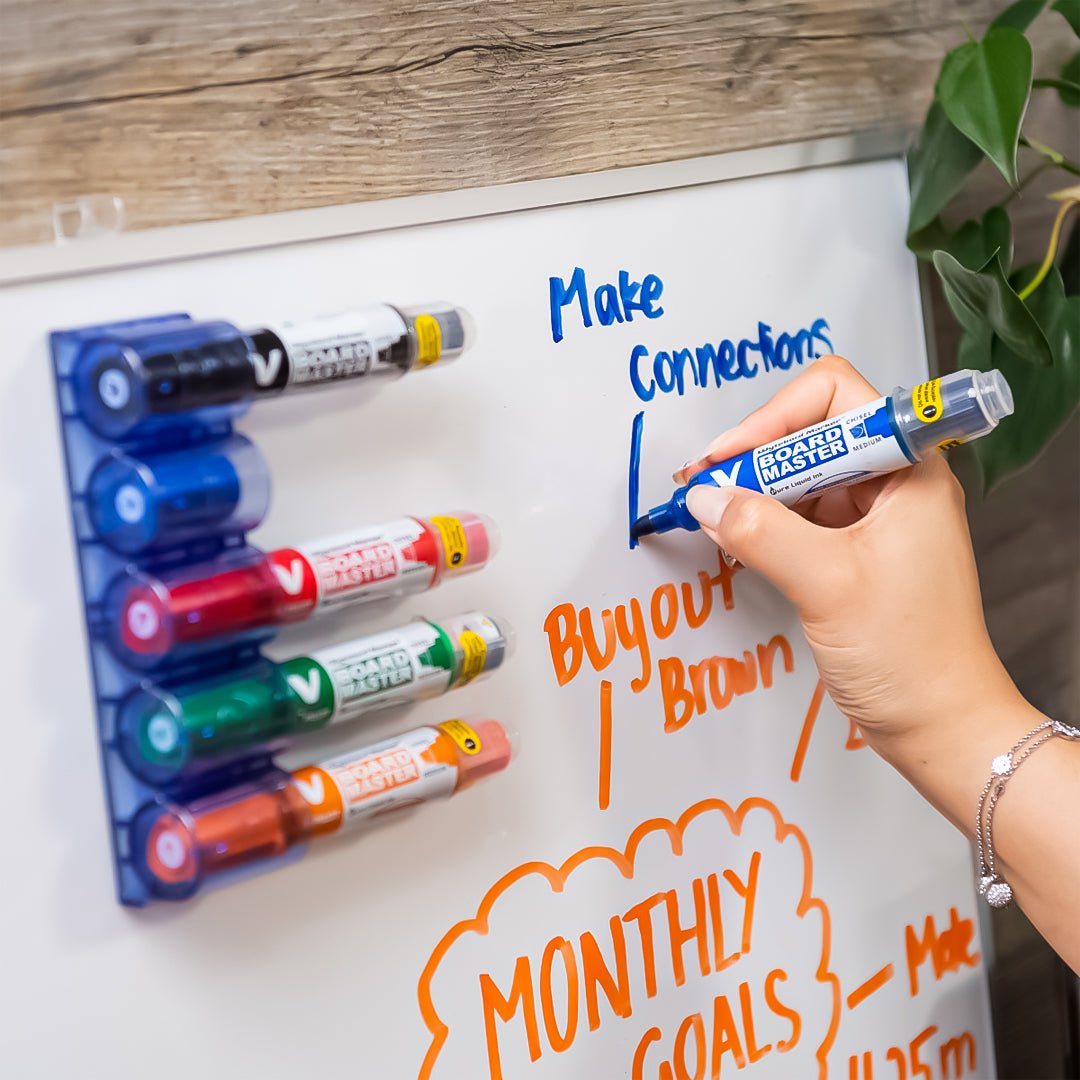 Make
Connections
V
BOARD
MASTER
V
Wyteboard Marker
BOARD
MASTER
Pure Liquid Ink
CHISEL
MEDIUM
V
BOARD
MASTER
V
BOARD
MASTER
V
BOARD
MASTER
Buyout
Brown
MONTHLY
GOALS
Make